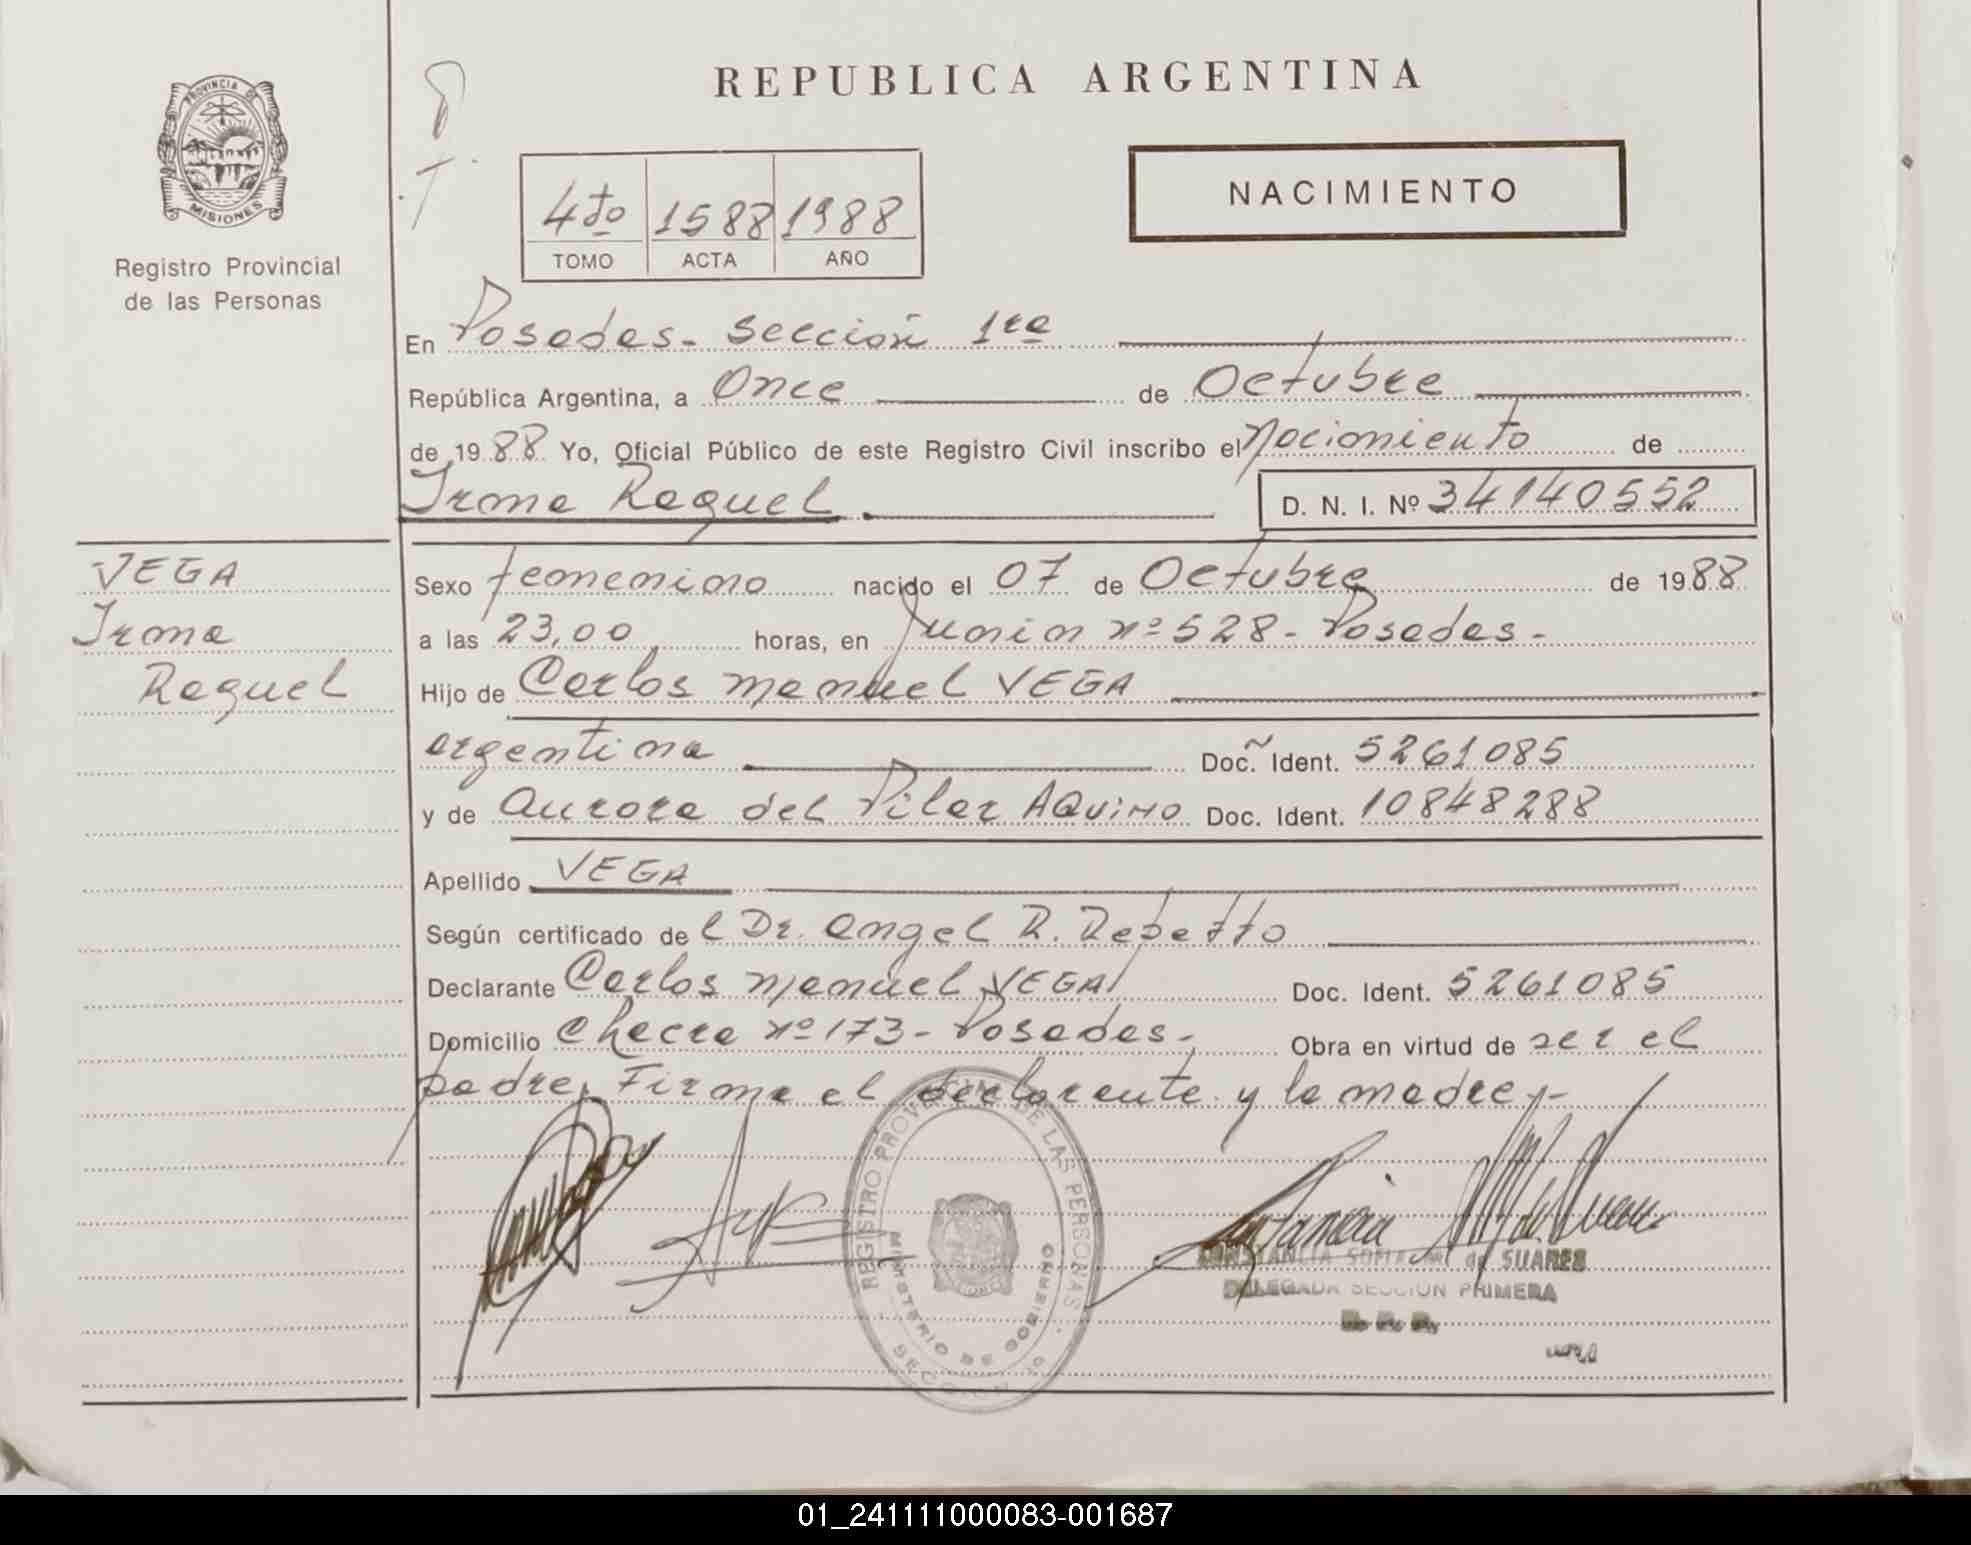 REPUBLICA ARGENTINA
PROVINCIA DE
MISIONES
Registro Provincial
de las Personas
4to 1588 1988
TOMO ACTA AÑO
NACIMIENTO
En Posadas - Sección 1ra
República Argentina, a Once de Octubre
de 1988 Yo, Oficial Público de este Registro Civil inscribo el Nacimiento de
Irma Raquel D. N. I. Nº 34140552
VEGA
Irma
Raquel
Sexo femenino nacido el 07 de Octubre de 1988
a las 23,00 horas, en Junin nº 528 - Posadas -
Hijo de Carlos Manuel VEGA
argentina Doc. Ident. 5261085
y de Aurora del Pilar AQUINO Doc. Ident. 10848288
Apellido VEGA
Según certificado de l Dr. Angel R. Repetto
Declarante Carlos Manuel VEGA Doc. Ident. 5261085
Domicilio Chacra nº 173 - Posadas - Obra en virtud de ser el
padre, Firma el declarante y la madre,-
REGISTRO PROVINCIAL DE LAS PERSONAS
MINISTERIO DE GOBIERNO
SECCION
CONSTANCIA de SUARES
DELEGADA SECCION PRIMERA
R. P. P.
01_241111000083-001687